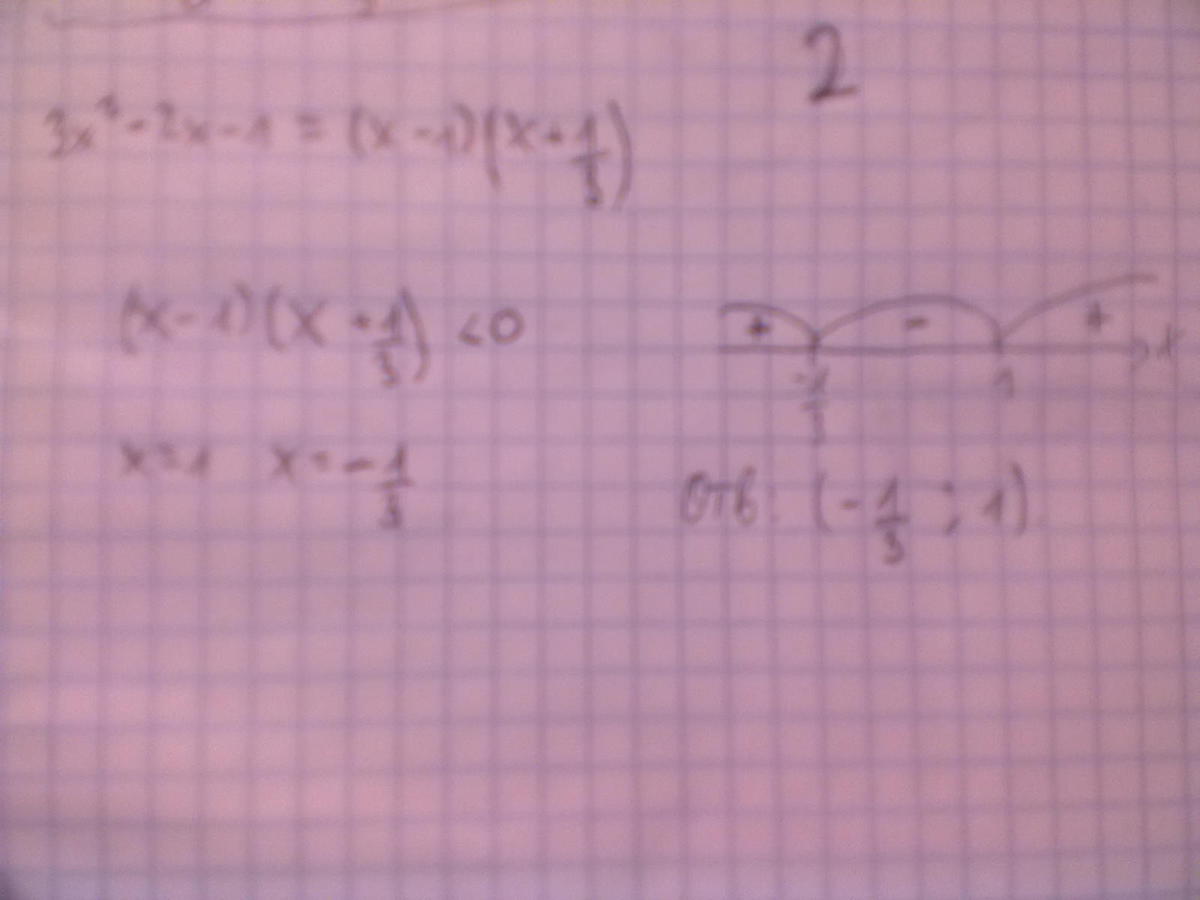 2
3x² - 2x - 1 = (x - 1)(x + 1/3)
(x - 1)(x + 1/3) < 0
+ - +
-1/3 1 x
x = 1 x = -1/3
Отв: (-1/3 ; 1)